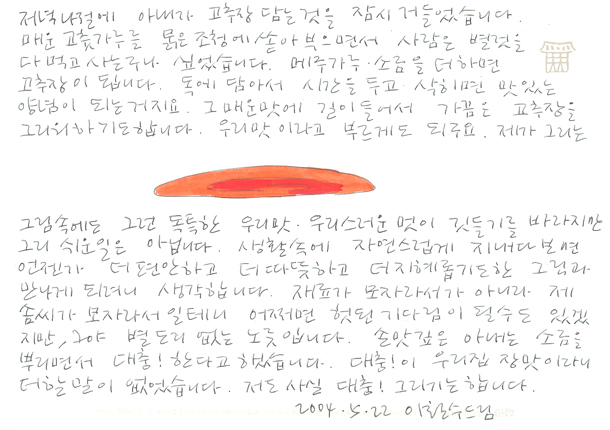 저녁나절에 아내가 고추장 담는것을 잠시 거들었습니다.
매운 고춧가루를 묽은 조청에 쏟아 부으면서 사람은 별것을
다 먹고 사는구나 싶었습니다. 메주가루·소금을 더하면
고추장이 됩니다. 독에 담아서 시간을 두고 삭히면 맛있는
양념이 되는거지요. 그 매운맛에 길이들어서 가끔은 고추장을
그리워하기도합니다. 우리맛이라고 부르게도 되구요. 제가 그리는
그림속에도 그런 독특한 우리맛·우리스러운 멋이 깃들기를 바라지만
그리 쉬운일은 아닙니다. 생활속에 자연스럽게 지내다보면
언젠가 더 편안하고 더 따뜻하고 더 지혜롭기도한 그림과
만나게 되려니 생각합니다. 재료가 모자라서가 아니라 제
솜씨가 모자라서 일테니 어쩌면 헛된 기다림이 될수도 있겠
지만, 그야 별 도리 없는 노릇입니다. 손맛 깊은 아내는 소금을
뿌리면서 대충! 한다고 했습니다. 대충!이 우리집 장맛이라니
더할 말이 없었습니다. 저도 사실 대충! 그리기는합니다.
2004.5.22 이철수드림